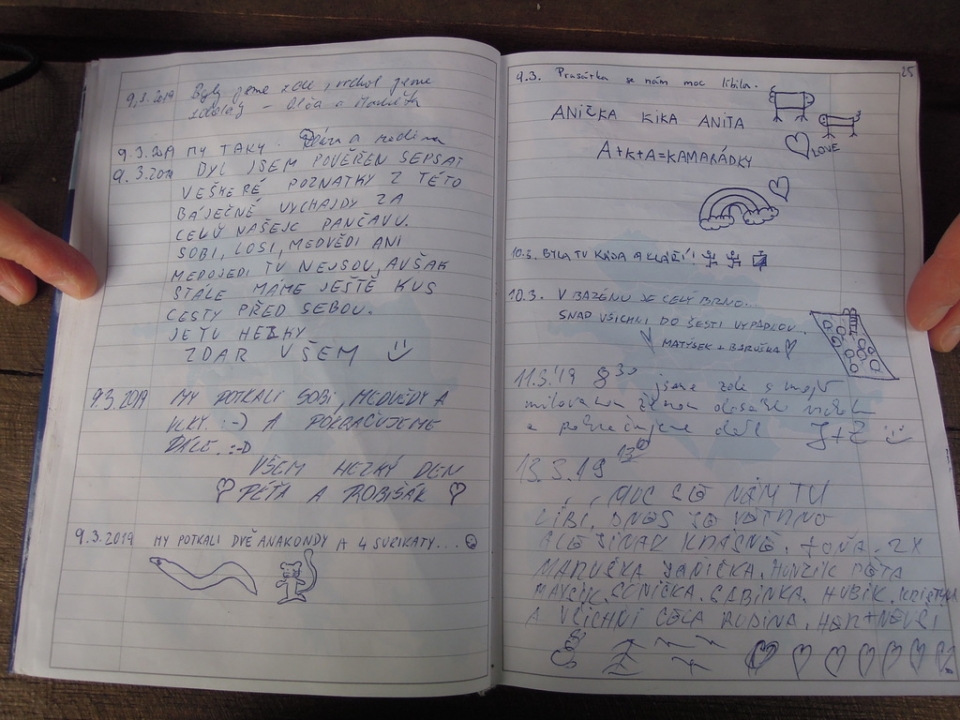 9.3.2019 Byly jsme zde, vrchol jsme
zdolaly - Olča a Markéta
9.3.2019 MY TAKY. a rodina
9.3.2019 BYL JSEM POVĚŘEN SEPSAT
VEŠKERÉ POZNATKY Z TÉTO
BÁJEČNÉ VYCHAJDY ZA
CELÝ NAŠEJC PANČAVU.
SOBI, LOSI, MEDVĚDI ANI
MEDOJEDI TU NEJSOU, AVŠAK
STÁLE MÁME JEŠTĚ KUS
CESTY PŘED SEBOU.
JE TU HEZKY
ZDAR VŠEM
9.3.2019 MY POTKALI SOBI, MEDVĚDY A
VLKY. :-) A POKRAČUJEME
DÁLE. :-D
VŠEM HEZKÝ DEN
♡ PÉŤA A ROBIŠÁK ♡
9.3.2019 MY POTKALI DVĚ ANAKONDY A 4 SURIKATY...
25
9.3. Prasátka se nám moc líbila.
ANIČKA KIKA ANITA
LOVE
A+K+A=KAMARÁDKY
10.3. BYLA TU KÁJA A
10.3. V BAZÉNU JE CELÝ BRNO...
SNAD VŠICHNI DO ŠESTI VYPADLOU...
♡ MATÝSEK + BARUŠKA ♡
11.3.'19 8³⁰ jsme zde s mojí
milovanou ženou dosáhli vrcholu
a pokračujeme dál J+Z
13.3.19 13⁰⁰
MOC SE NÁM TU
LÍBÍ. DNES JE VĚTRNO
ALE JINAK KRÁSNĚ. TOŇA. 2X
MARUŠKA JANIČKA. HONZÍK PÉTA
SONIČKA. SABINKA. HUBÍK. KRISTÝNA
A VŠICHNI CELÁ RODINA.